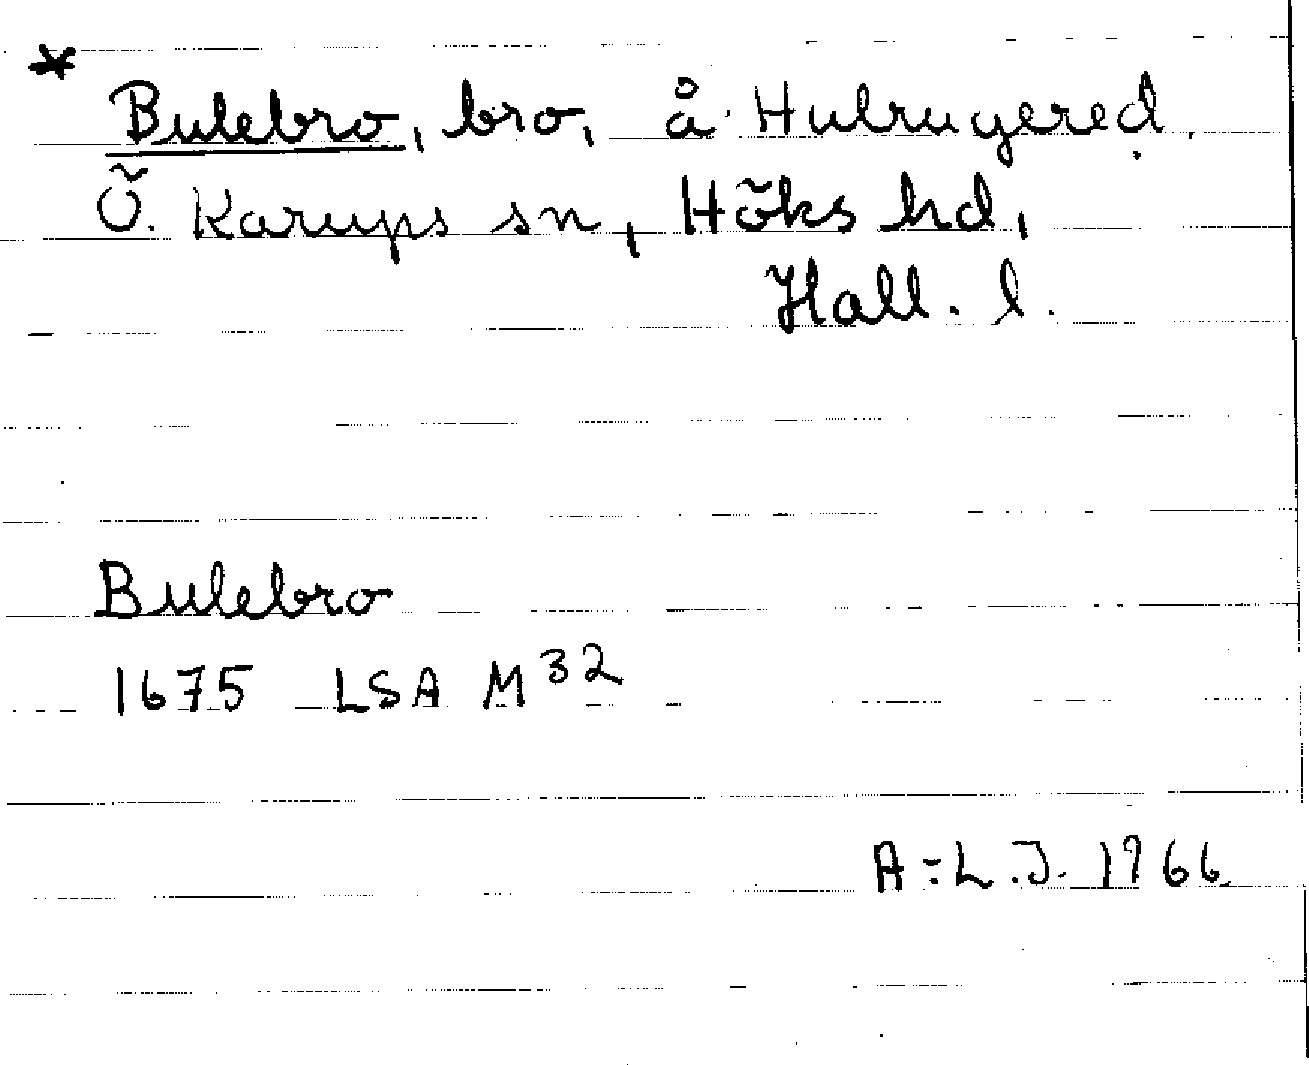 * Bulebro, bro, å Hulrugered,
Ö. Karups sn, Höks hd,
Hall. l.
Bulebro
1675 LSA M32
A-L.J. 1966